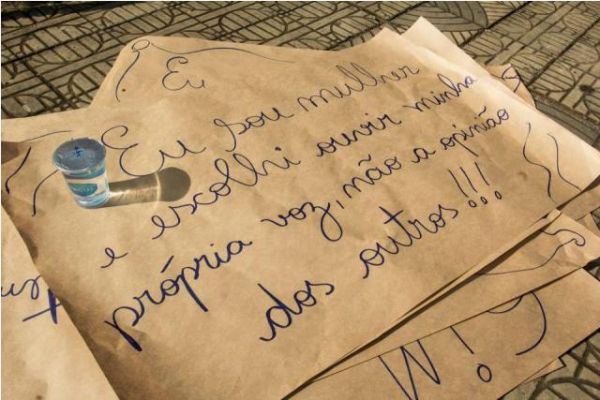 Eu
Eu sou mulher
e escolhi ouvir minha
própria voz, não a opinião
dos outros!!!